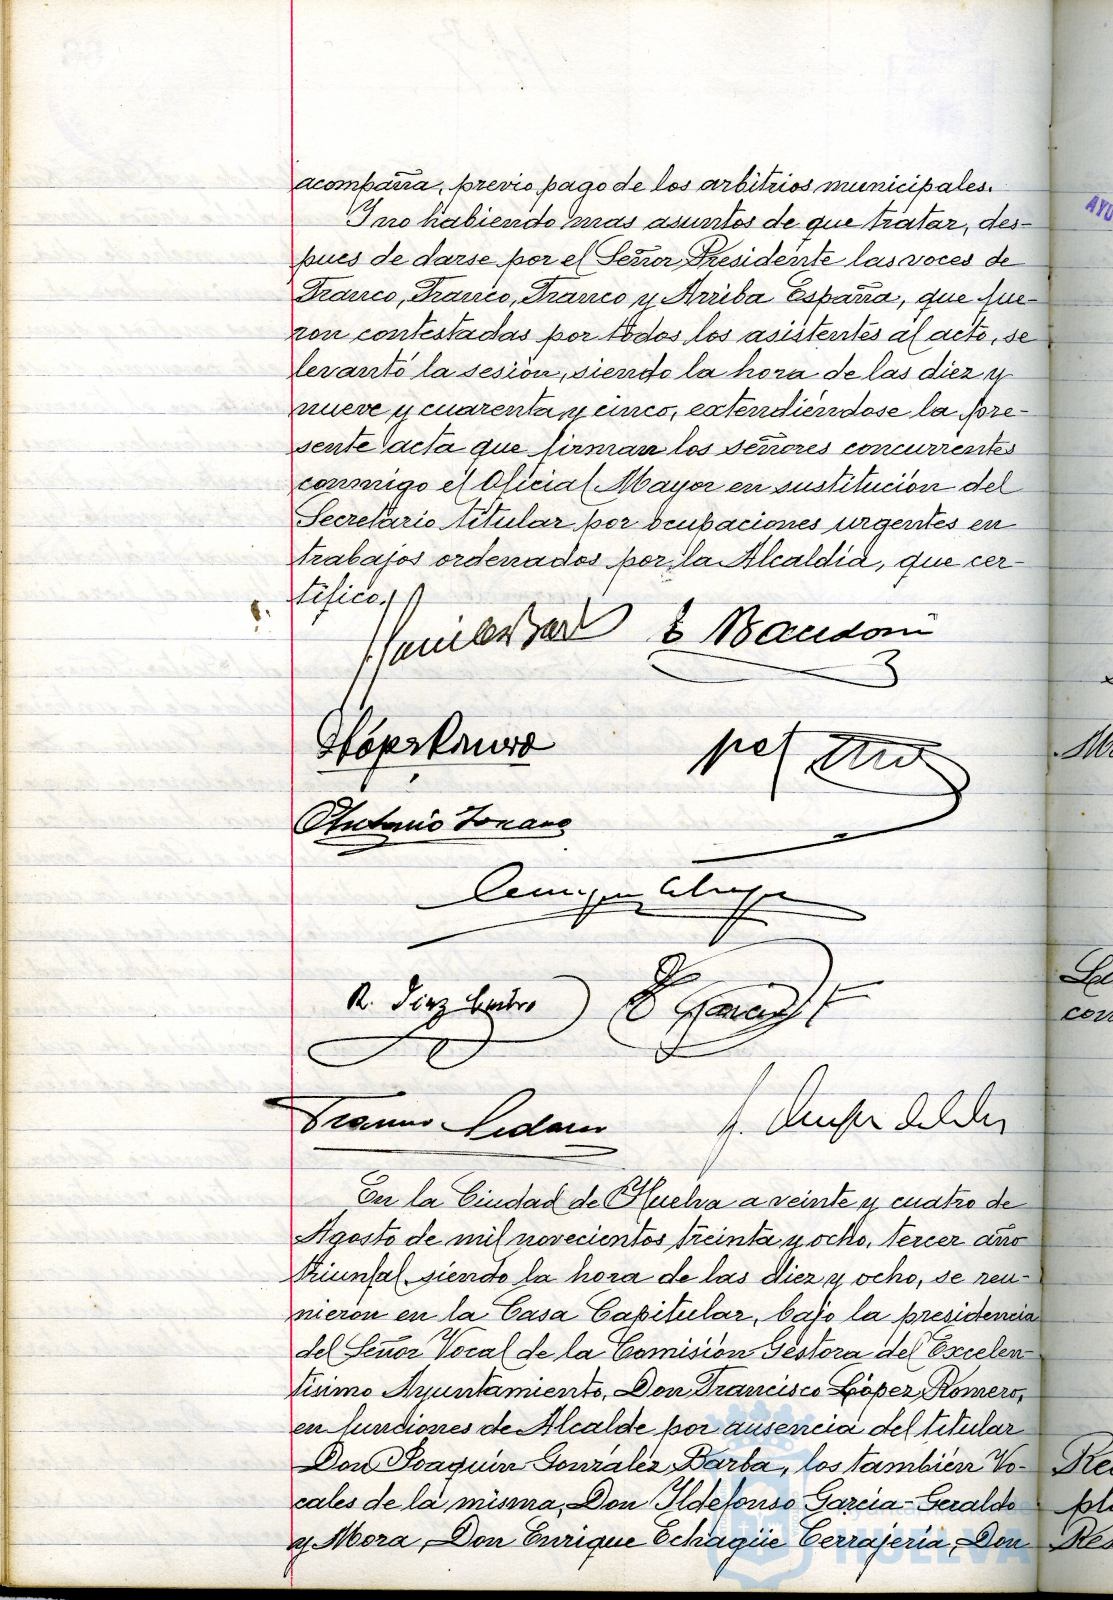 acompaña, previo pago de los arbitrios municipales.
Y no habiendo mas asuntos de que tratar, des-
pues de darse por el Señor Presidente las voces de
Franco, Franco, Franco y Arriba España, que fue-
ron contestadas por todos los asistentes al acto, se
levantó la sesión, siendo la hora de las diez y
nueve y cuarenta y cinco, extendiéndose la pre-
sente acta que firman los señores concurrentes
conmigo el Oficial Mayor en sustitución del
Secretario titular por ocupaciones urgentes en
trabajos ordenados por la Alcaldía, que cer-
tifico.
R. Diez
En la Ciudad de Huelva a veinte y cuatro de
Agosto de mil novecientos treinta y ocho, tercer año
triunfal, siendo la hora de las diez y ocho, se reu-
nieron en la Casa Capitular, bajo la presidencia
del Señor Vocal de la Comisión Gestora del Excelen-
tisimo Ayuntamiento, Don Francisco López Romero,
en funciones de Alcalde por ausencia del titular
Don Joaquín González Barba, los también Vo-
cales de la misma, Don Ildefonso García-Geraldo
y Mora, Don Enrique Echagüe Cerrajería, Don
HUELVA